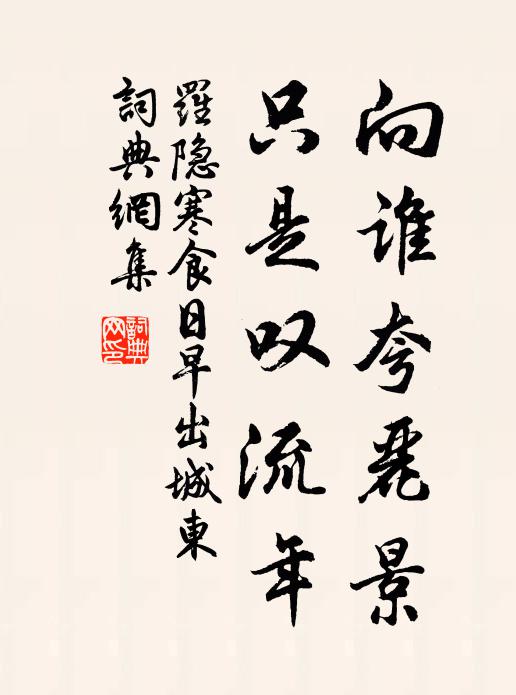 向谁夸丽景
只是叹流年
羅隐寒食日早出城東
詞典網集
詞典网印